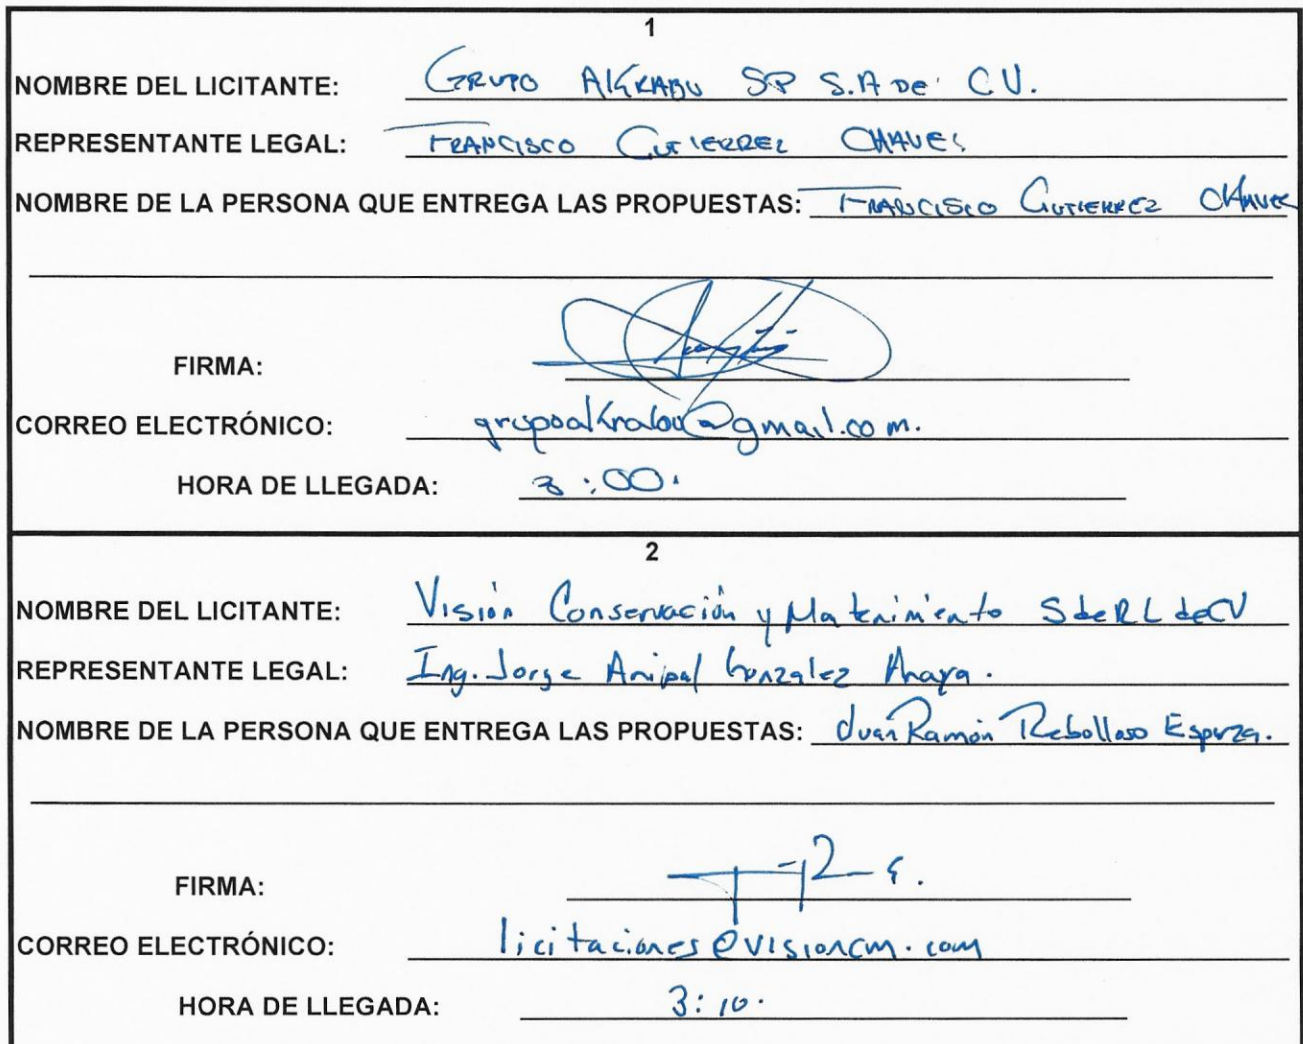 1
NOMBRE DEL LICITANTE: GRUPO AKKRABU SP S.A DE C.V.
REPRESENTANTE LEGAL: FRANCISCO GUTIERREZ CHAVEZ
NOMBRE DE LA PERSONA QUE ENTREGA LAS PROPUESTAS: FRANCISCO GUTIERREZ CHAVEZ
FIRMA:
CORREO ELECTRÓNICO: grupoalkrabu@gmail.com.
HORA DE LLEGADA: 3:00.
2
NOMBRE DEL LICITANTE: Visión Conservación y Matenimiento S de RL de CV
REPRESENTANTE LEGAL: Ing. Jorge Anibal Gonzalez Anaya.
NOMBRE DE LA PERSONA QUE ENTREGA LAS PROPUESTAS: Juan Ramón Rebolloso Esparza.
FIRMA:
CORREO ELECTRÓNICO: licitaciones@visioncm.com
HORA DE LLEGADA: 3:10.